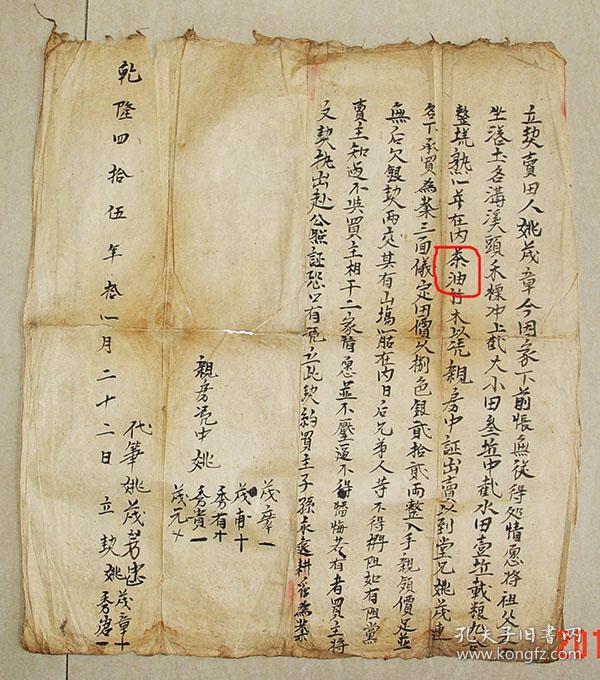 立契賣田人姚茂章今因家下前帳無従得処情愿将祖父
坐落土名溝溪頭禾裸冲上截大小田叁坵中截水田壹坵載粮九合
整坑熟一并在内茶油竹木以凭親房中証出賣以到堂兄姚茂連
名下承買為業三面儀定田價久捌色銀貳拾貳両整入手親領價足並
無后欠銀契両交其有山塲一陷在内日后兄弟人等不得阻如有阻黨
賣主知㕑不與買主相干二家情愿並不壓逼不得憣悔若有者買主将
文契执出赴公照証恐口有凭立此契約買主子孫永遠耕管為業
親房凭中姚
茂章一
茂甫十
秀有十
秀貴一
茂元十
代筆姚茂芳忠
乾隆四拾伍年拾一月二十二日立契姚
茂章十
秀唐一
孔夫子旧书网
www.kongfz.com
201